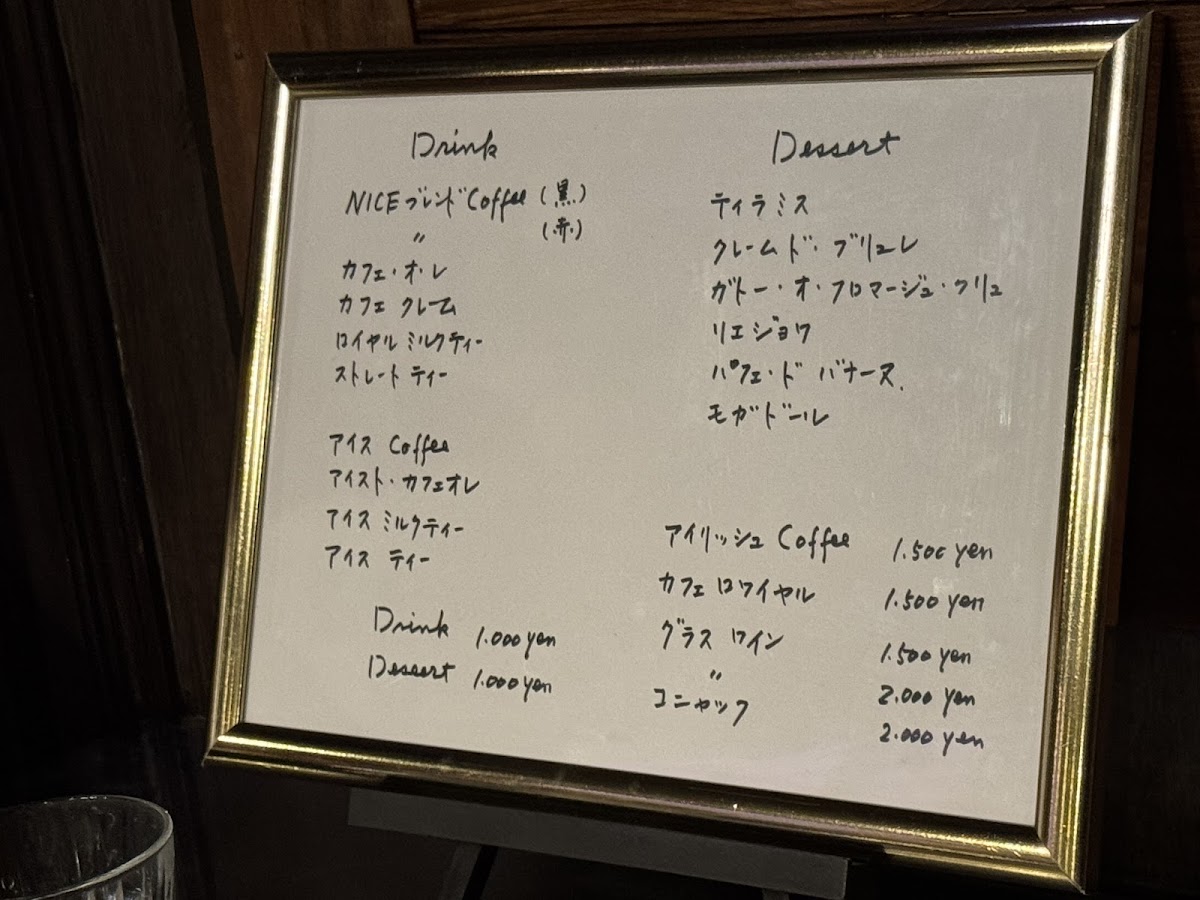 Drink
NICEブレンドCoffee (黒)
〃 (赤)
カフェ・オ・レ
カフェ クレーム
ロイヤル ミルクティー
ストレート ティー
アイス Coffee
アイスト・カフェオレ
アイス ミルクティー
アイス ティー
Drink 1.000 yen
Dessert 1.000 yen
Dessert
ティラミス
クレーム ド・ブリュレ
ガトー・オ・フロマージュ・クリュ
リエジョワ
パフェ・ド バナーヌ
モガドール
アイリッシュ Coffee 1.500 yen
カフェ ロワイヤル 1.500 yen
グラス ワイン 1.500 yen
〃 2.000 yen
コニャック 2.000 yen